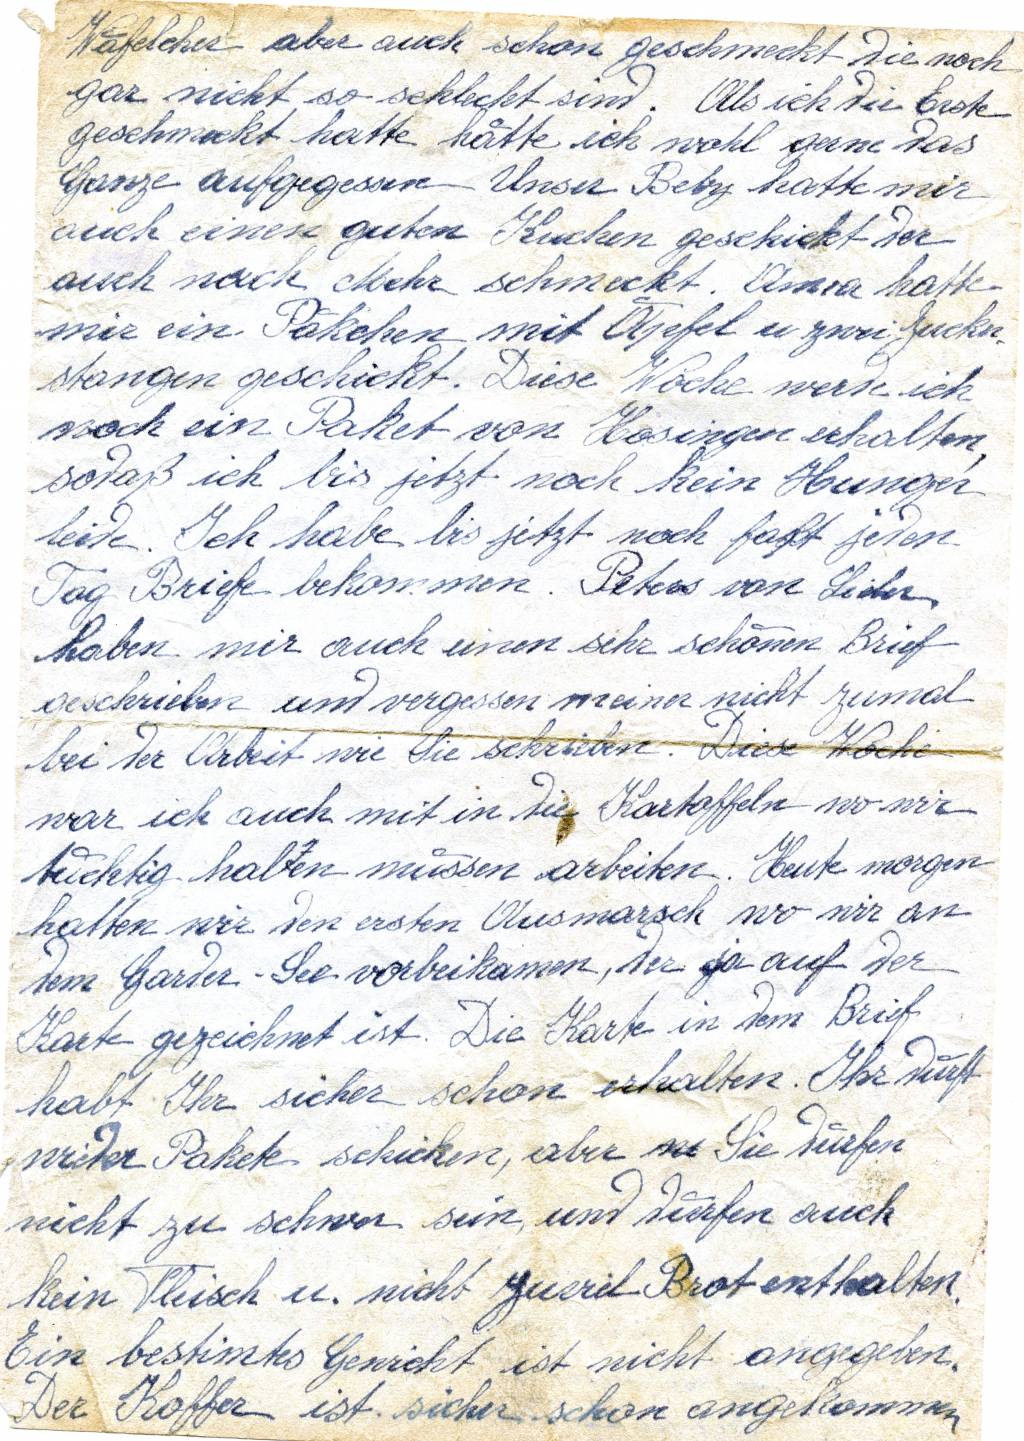 Wäfelcher aber auch schon geschmeckt die noch
gar nicht so schlecht sind. Als ich die Erste
geschmeckt hatte hätte ich wohl gern das
Ganze aufgegessen Unser Beby hatte mir
auch einen guten Kuchen geschickt der
auch nach Mehr schmeckt. Anna hatte
mir ein Päkchen mit Äpfel u zwei Zucker-
stangen geschickt. Diese Woche werde ich
noch ein Paket von Hosingen erhalten,
sodaß ich bis jetzt noch kein Hunger
leide. Ich habe bis jetzt noch fast jeden
Tag Briefe bekommen. Peters von
haben mir auch einen sehr schönen Brief
geschrieben und vergessen meiner nicht zumal
bei der Arbeit wie Sie schrieben. Diese Woche
war ich auch mit in die Kartoffeln wo wir
tüchtig haben müssen arbeiten. Heute morgen
hatten wir den ersten Ausmarsch wo wir an
dem Garder-See vorbeikamen, der ja auf der
Karte gezeichnet ist. Die Karte in dem Brief
habt Ihr sicher schon erhalten. Ihr dürft
wieder Pakete schicken, aber Sie dürfen
nicht zu schwer sein, und dürfen auch
kein Fleisch u. nicht zuviel Brot enthalten.
Ein bestimtes Gewicht ist nicht angegeben.
Der Koffer ist sicher schon angekommen